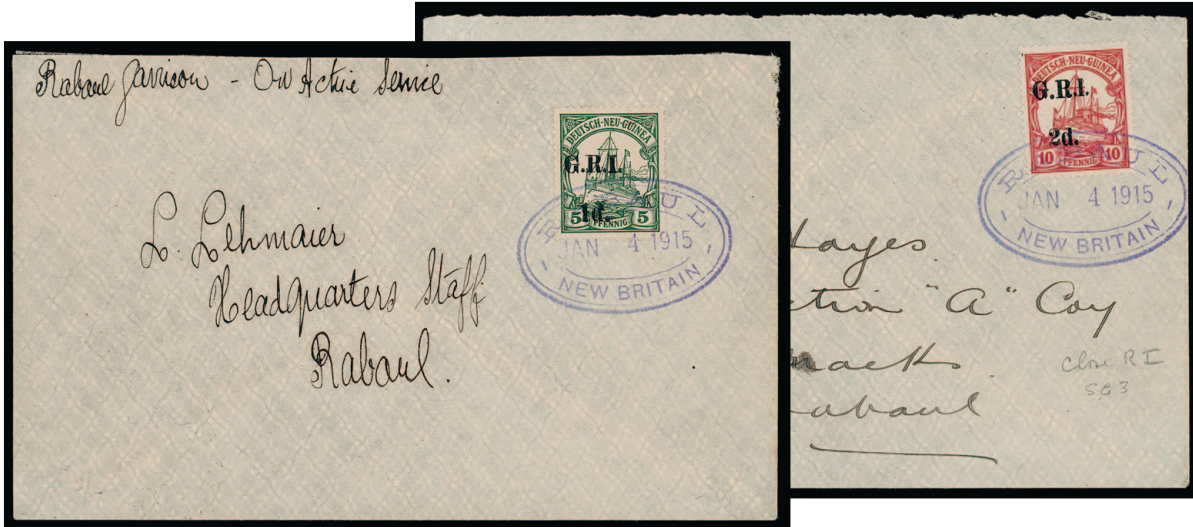 Rabaul Garrison - On Active Service
DEUTSCH-NEU-GUINEA
G.R.I.
1d.
5 PFENNIG 5
RABAUL
JAN 4 1915
- NEW BRITAIN -
L. Lehmaier
Headquarters Staff
Rabaul.
DEUTSCH-NEU-GUINEA
G.R.I.
2d.
10 PFENNIG 10
RABAUL
JAN 4 1915
- NEW BRITAIN -
Hayes.
ction "A" Coy
abaul
Close R I
SG 3